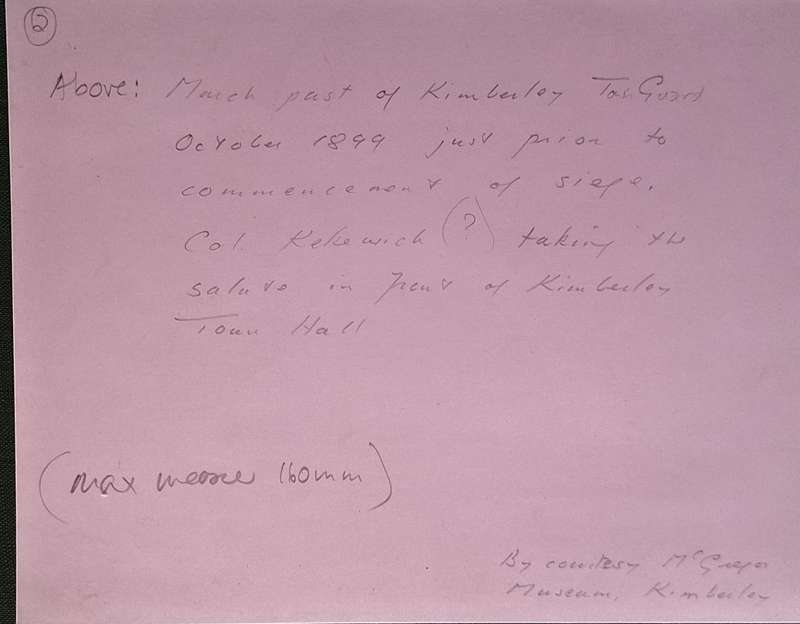 2
Above: March past of Kimberley Town Guard
October 1899 just prior to
commencement of siege.
Col. Kekewich (?) taking the
salute in front of Kimberley
Town Hall
(max measure 160mm)
By courtesy McGregor
Museum, Kimberley